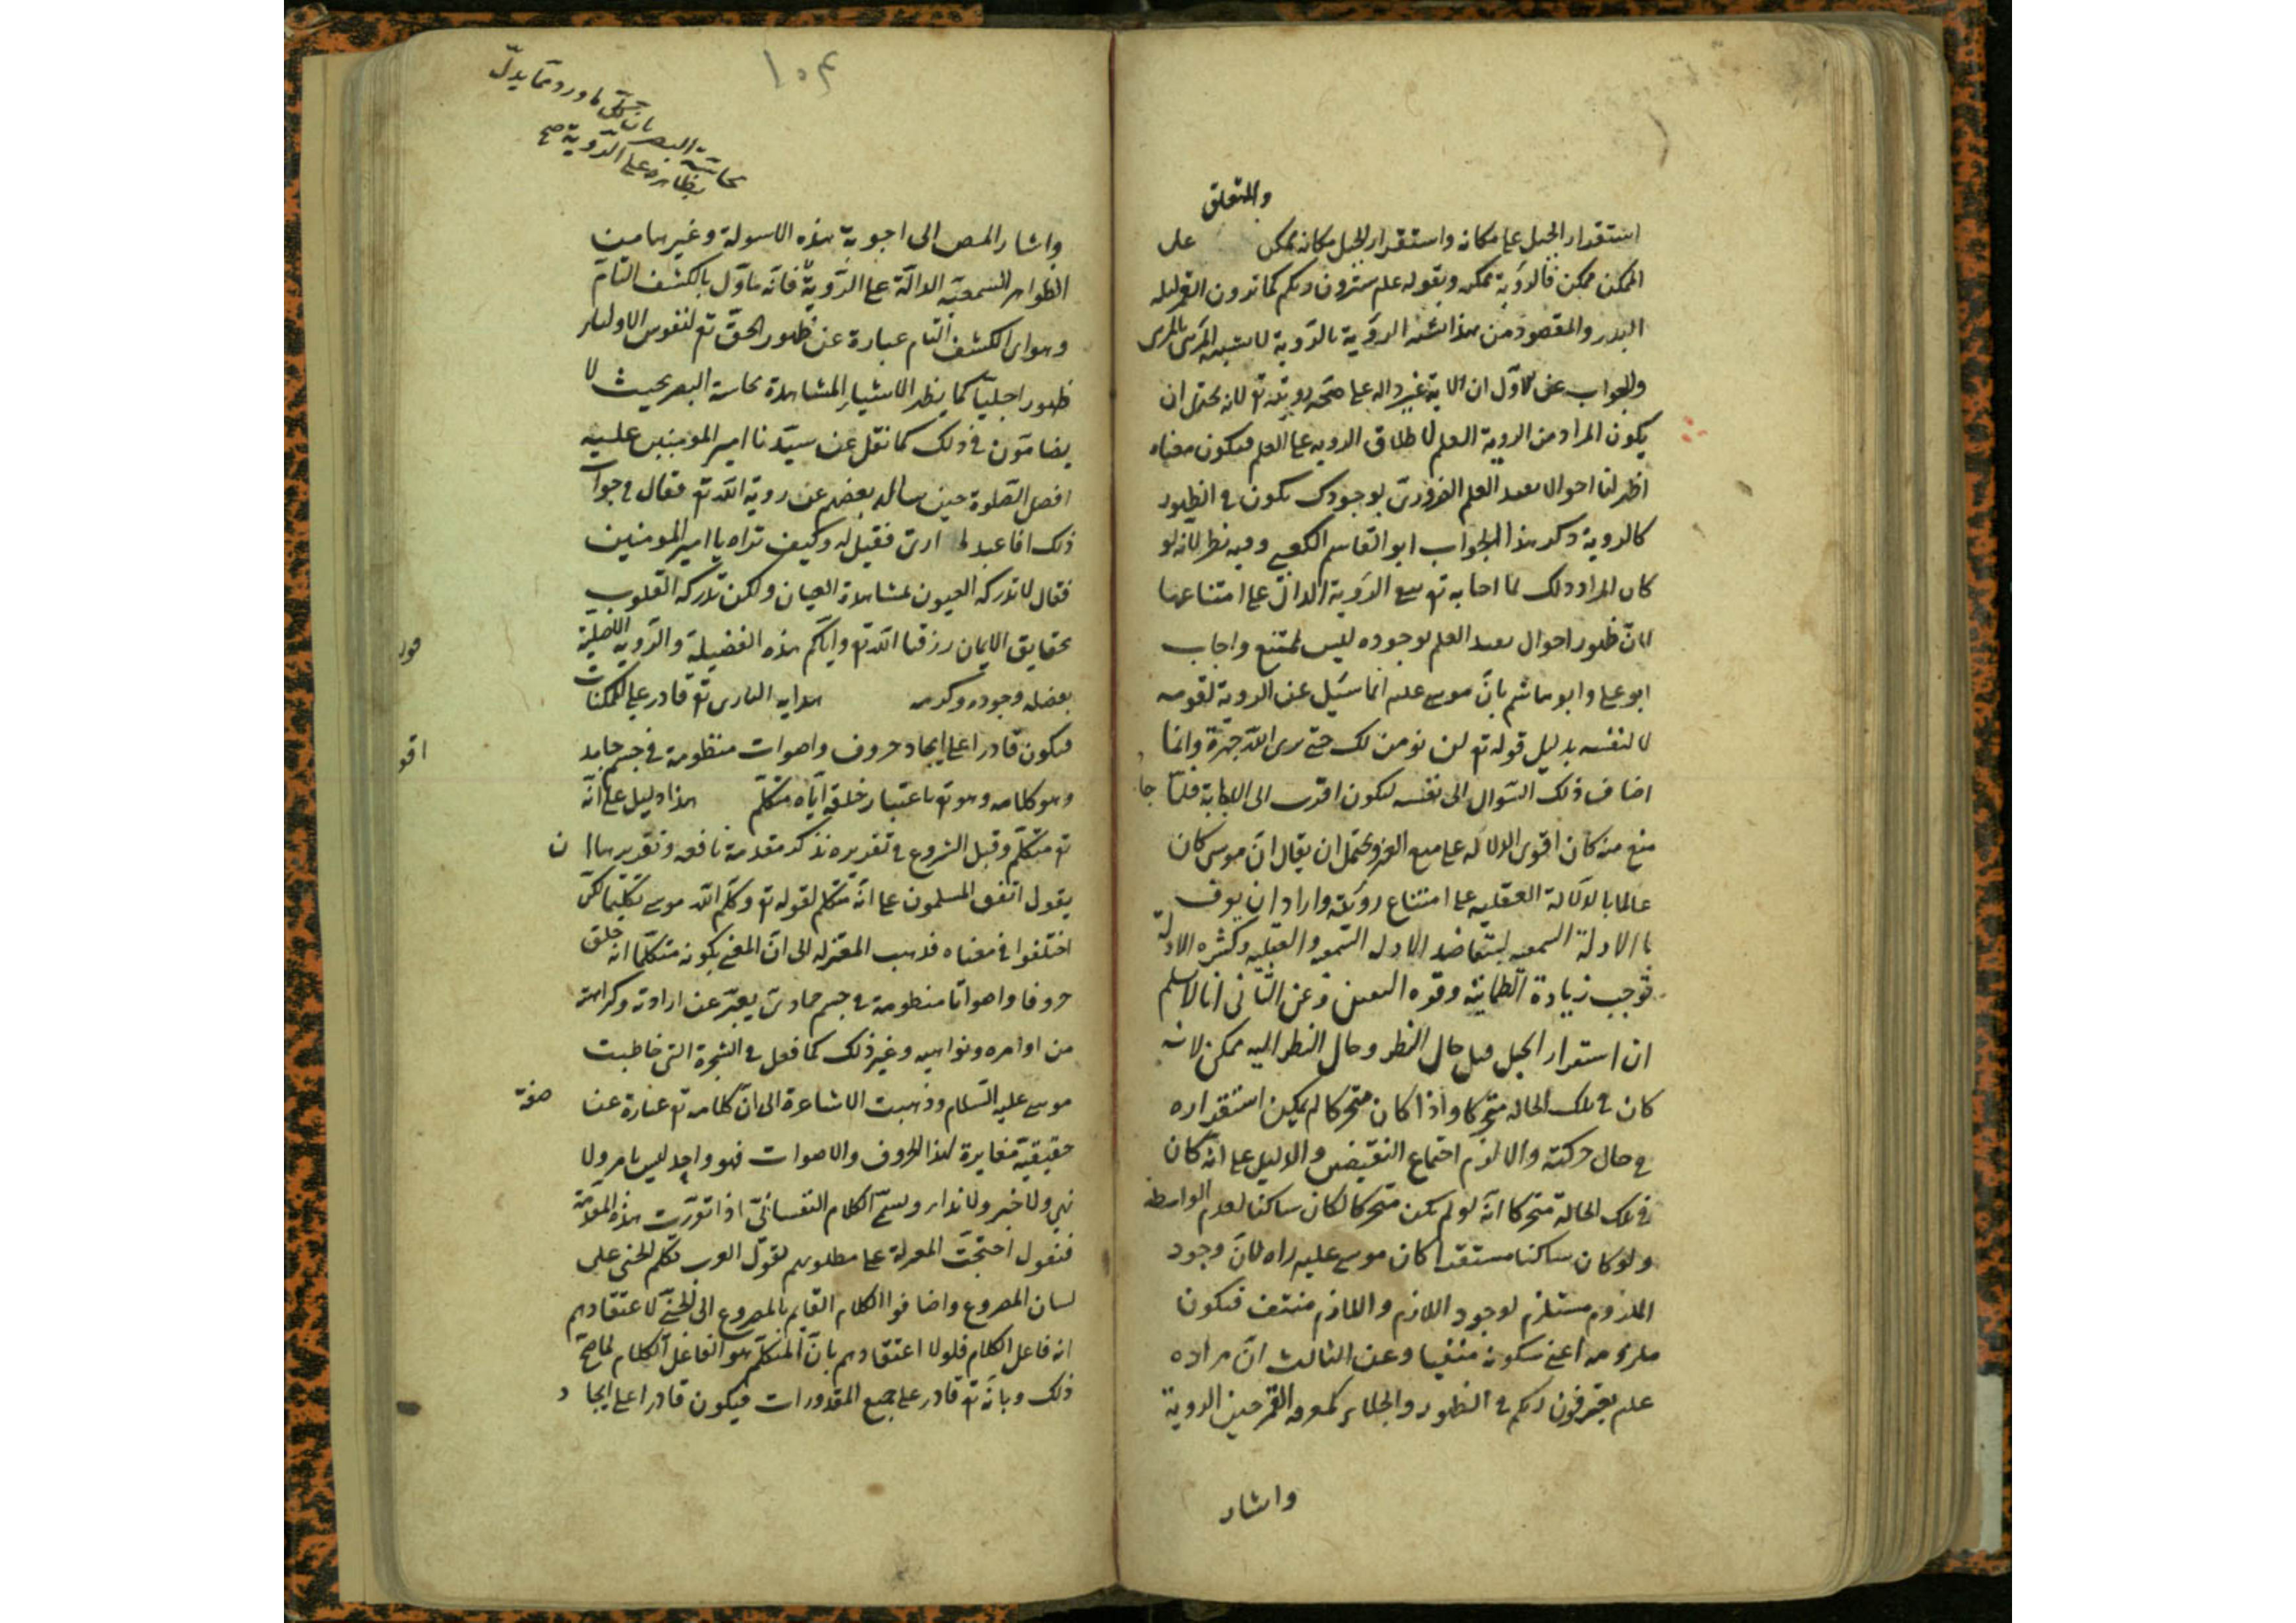 والمتعلق
استقرار الجبل على مكانه واستقرار الجبل مكانه ممكن على
الممكن ممكن فالرؤية ممكنه وبقوله علم سترون ربكم كما ترون القمر ليله
البدر والمقصود من هذا تشبه الرؤية بالرؤية لا تشبيه المرئى بالمرى
والجواب عن الاول ان الاية غير داله على صحه رويته تع لانه يحتمل ان
يكون المراد من الروية العلم لاطلاق الرويه على العلم فيكون معناه
اظهر لنا احوالا بعد العلم الضرورى بوجودك يكون فى الظهور
كالروية ذكر هذا الجواب ابو القاسم الكعبى وفيه نظر لانه لو
كان المراد ذلك لما اجابه تع بنفى الرؤية الدال على امتناعها
لان ظهور احوال بعد العلم بوجوده ليس بممتنع واجاب
ابو على وابو هاشم بان موسى علم انما سئل عن الروية لقومه
لا لنفسه بدليل قوله تع لن نومن لك حتى نرى الله جهرة وانما
اضاف ذلك السوال الى نفسه ليكون اقرب الى الاجابة فلما جا
منع منه كان اقوى الدلاله على منع الغير ويحتمل ان يقال ان موسى كان
عالما بالدلالة العقليه على امتناع رؤيته واراد ان يعرف
بالادلة السمعيه ليتعاضد الادله السمعيه والعقليه وكثره الادلة
توجب زيادة الطمانينة وقوه اليقين وعن الثانى انا لا نسلم
ان استقرار الجبل قبل حال النظر وحال النظر اليه ممكن لانه
كان فى تلك الحاله متحركا واذا كان متحركا لم يمكن استقراره
فى حال حركته والا لزم اجتماع النقيضين والدليل على انه كان
فى تلك الحالة متحركا انه لو لم يكن متحركا لكان ساكنا لعدم الواسطه
ولو كان ساكنا مستقرا كان موسى عليه راه لان وجود
الملزوم مستلزم لوجود اللازم واللازم منتف فيكون
ملزومه اعنى سكونه منفيا وعن الثالث ان مراده
علم يعرفون ربكم فى الظهور والجلاء كمعرفه القمر حين الروية
واشار
١٠٤
بحاسة البصر
بظاهره على الرؤية صح
واشار المص الى اجوبة هذه الاسولة وغيرها من
الظواهر السمعية الدالة على الرؤية فانه ماول بالكشف التام
وهو اى الكشف التام عبارة عن ظهور الحق تع لنفوس الاولياء
ظهورا جليا كما يظهر الاشياء المشاهدة بحاسة البصر بحيث لا
يضامون فى ذلك كما نقل عن سيدنا امير المومنين عليه
افضل الصلوة حين ساله بعضهم عن روية الله تع فقال فى جواب
ذلك افاعبد لما ارى فقيل له وكيف تراه يا امير المومنين
فقال لا تدركه العيون بمشاهدة العيان ولكن تدركه القلوب
بحقايق الايمان رزقنا الله تع واياكم هذه الفضيلة والرؤيه
بفضله وجوده وكرمه هدايه البارى تع قادر على الممكنات
فيكون قادرا على ايجاد حروف واصوات منظومة فى جسم جامد
وهو كلامه وهو تع باعتبار خلقه اياه متكلم هذا دليل على انه
تع متكلم وقبل الشروع فى تقريره نذكر مقدمة نافعه وتقريرها ان
يقول اتفق المسلمون على انه متكلم لقوله تع وكلم الله موسى تكليما لكن
اختلفوا فى معناه فذهب المعتزله الى ان المعنى بكونه متكلما انه خلق
حروفا واصواتا منظومة فى جسم جمادى يعبر عن ارادته وكراهته
من اوامره ونواهيه وغير ذلك كما فعل فى الشجرة التى خاطبت
موسى عليه السلام وذهبت الاشاعرة الى ان كلامه تع عبارة عن صفة
حقيقية مغايرة لهذا الحروف والاصوات فهو واحد ليس بامر ولا
نهى ولا خبر ولا نداء ويسمى الكلام النفسانى اذا تقررت هذه المقدمة
فنقول احتجت المعتزلة على مطلوبهم بقول العرب تكلم الجنى على
لسان المصروع واضافوا الكلام القايم بالمصروع الى الجنى لاعتقادهم
انه فاعل الكلام فلولا اعتقادهم بان المتكلم هو الفاعل الكلام لما صح
ذلك وبانه تع قادر على جميع المقدورات فيكون قادرا على ايجاد